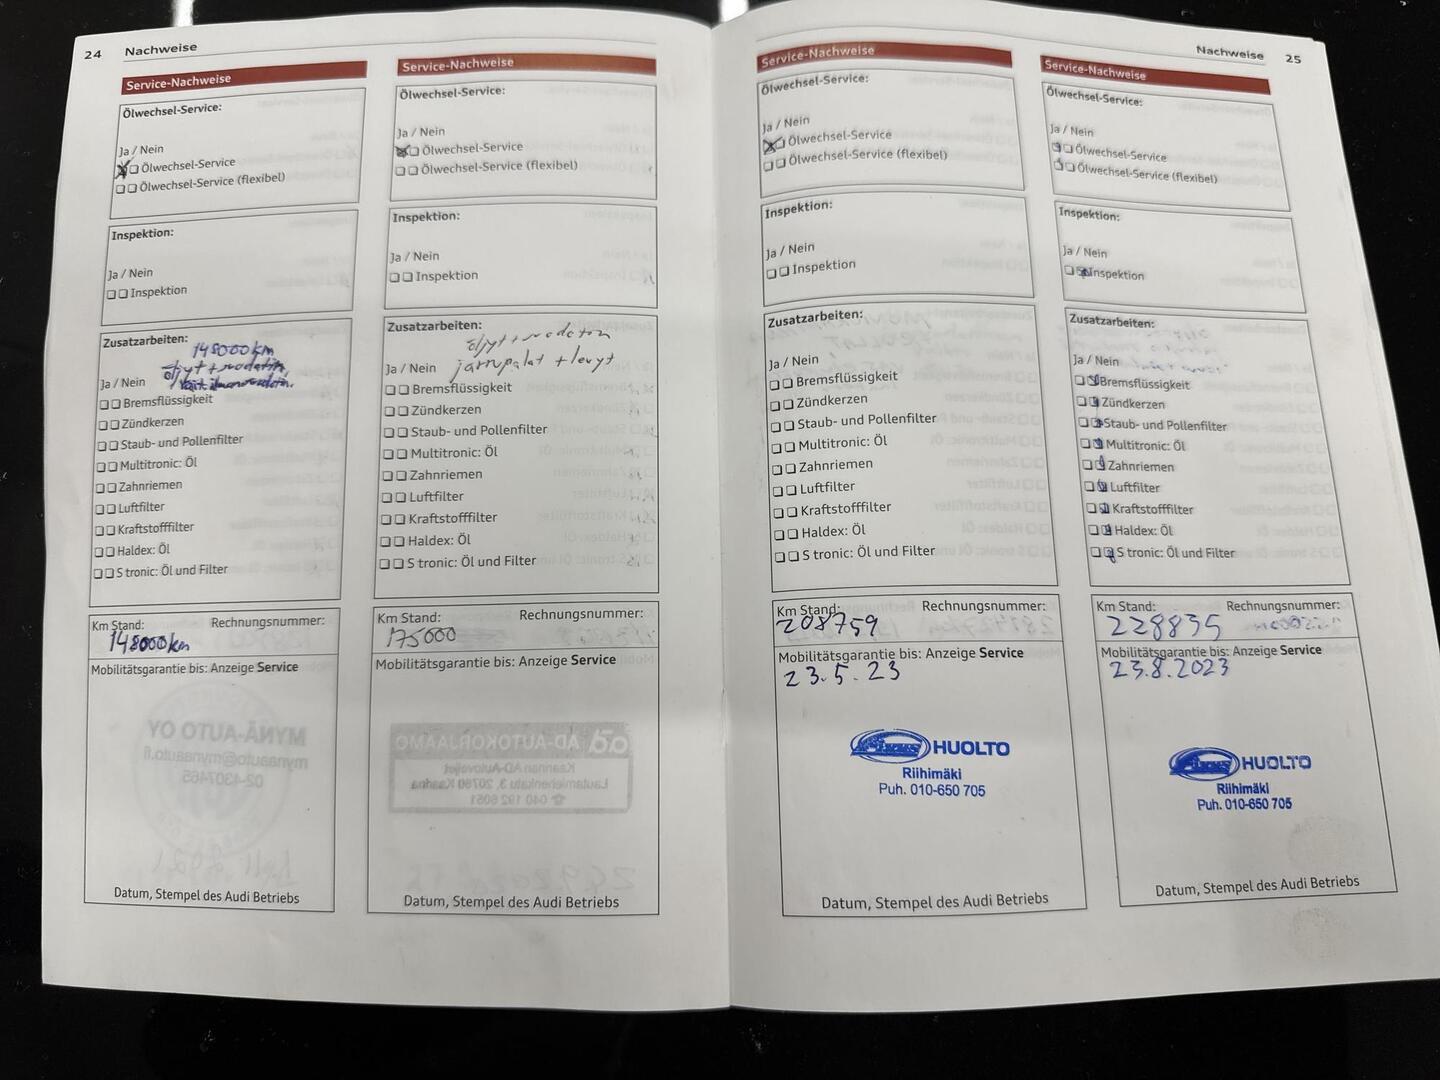 24 Nachweise
Service-Nachweise
Ölwechsel-Service:
Ja / Nein
Ölwechsel-Service
Ölwechsel-Service (flexibel)
Inspektion:
Ja / Nein
Inspektion
Zusatzarbeiten:
148000 km
öljyt + suodatin,
Ja / Nein
Bremsflüssigkeit
Zündkerzen
Staub- und Pollenfilter
Multitronic: Öl
Zahnriemen
Luftfilter
Kraftstofffilter
Haldex: Öl
S tronic: Öl und Filter
Km Stand: Rechnungsnummer:
148000 km
Mobilitätsgarantie bis: Anzeige Service
Datum, Stempel des Audi Betriebs
Service-Nachweise
Ölwechsel-Service:
Ja / Nein
Ölwechsel-Service
Ölwechsel-Service (flexibel)
Inspektion:
Ja / Nein
Inspektion
Zusatzarbeiten:
öljyt + suodatin
Ja / Nein jarrupalat + levyt
Bremsflüssigkeit
Zündkerzen
Staub- und Pollenfilter
Multitronic: Öl
Zahnriemen
Luftfilter
Kraftstofffilter
Haldex: Öl
S tronic: Öl und Filter
Km Stand: Rechnungsnummer:
175000
Mobilitätsgarantie bis: Anzeige Service
Datum, Stempel des Audi Betriebs
Nachweise 25
Service-Nachweise
Ölwechsel-Service:
Ja / Nein
Ölwechsel-Service
Ölwechsel-Service (flexibel)
Inspektion:
Ja / Nein
Inspektion
Zusatzarbeiten:
Ja / Nein
Bremsflüssigkeit
Zündkerzen
Staub- und Pollenfilter
Multitronic: Öl
Zahnriemen
Luftfilter
Kraftstofffilter
Haldex: Öl
S tronic: Öl und Filter
Km Stand: Rechnungsnummer:
208759
Mobilitätsgarantie bis: Anzeige Service
23.5.23
HUOLTO
Riihimäki
Puh. 010-650 705
Datum, Stempel des Audi Betriebs
Service-Nachweise
Ölwechsel-Service:
Ja / Nein
Ölwechsel-Service
Ölwechsel-Service (flexibel)
Inspektion:
Ja / Nein
Inspektion
Zusatzarbeiten:
Ja / Nein
Bremsflüssigkeit
Zündkerzen
Staub- und Pollenfilter
Multitronic: Öl
Zahnriemen
Luftfilter
Kraftstofffilter
Haldex: Öl
S tronic: Öl und Filter
Km Stand: Rechnungsnummer:
228835
Mobilitätsgarantie bis: Anzeige Service
23.8.2023
HUOLTO
Riihimäki
Puh. 010-650 705
Datum, Stempel des Audi Betriebs